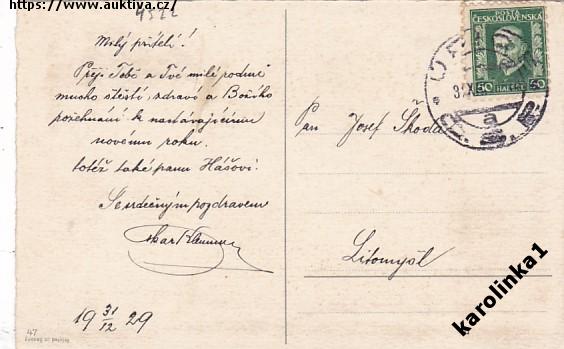 https://www.auktiva.cz/
4522
Milý příteli!
Přeji Tobě a Tvé milé rodině
mnoho štěstí, zdraví a Božího
požehnání k nastávajícímu
novému roku.
totéž také panu Hášovi.
Se srdečným pozdravem
19 31/12 29
47
Printed in Saxony
POŠTA
ČESKOSLOVENSKÁ
50 HALÉŘŮ 50
a
Pan Josef Škoda
Litomyšl
karolinka1